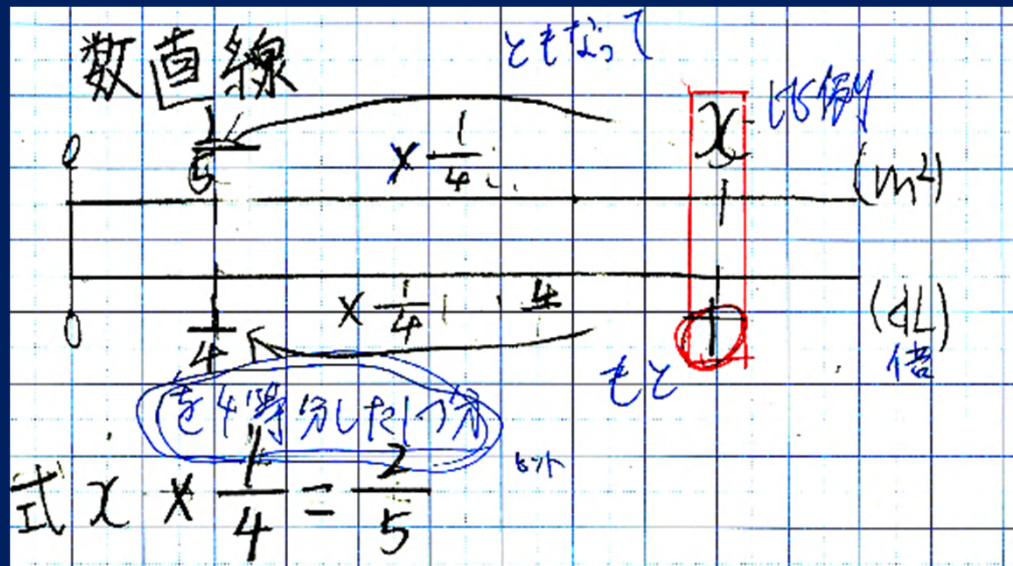 数直線
ともなって
比例
2/5
× 1/4
x
(m²)
0
0
1/4
× 1/4
4
1
(dL)
倍
もと
を4等分した1つ分
ヒント
式 x × 1/4 = 2/5